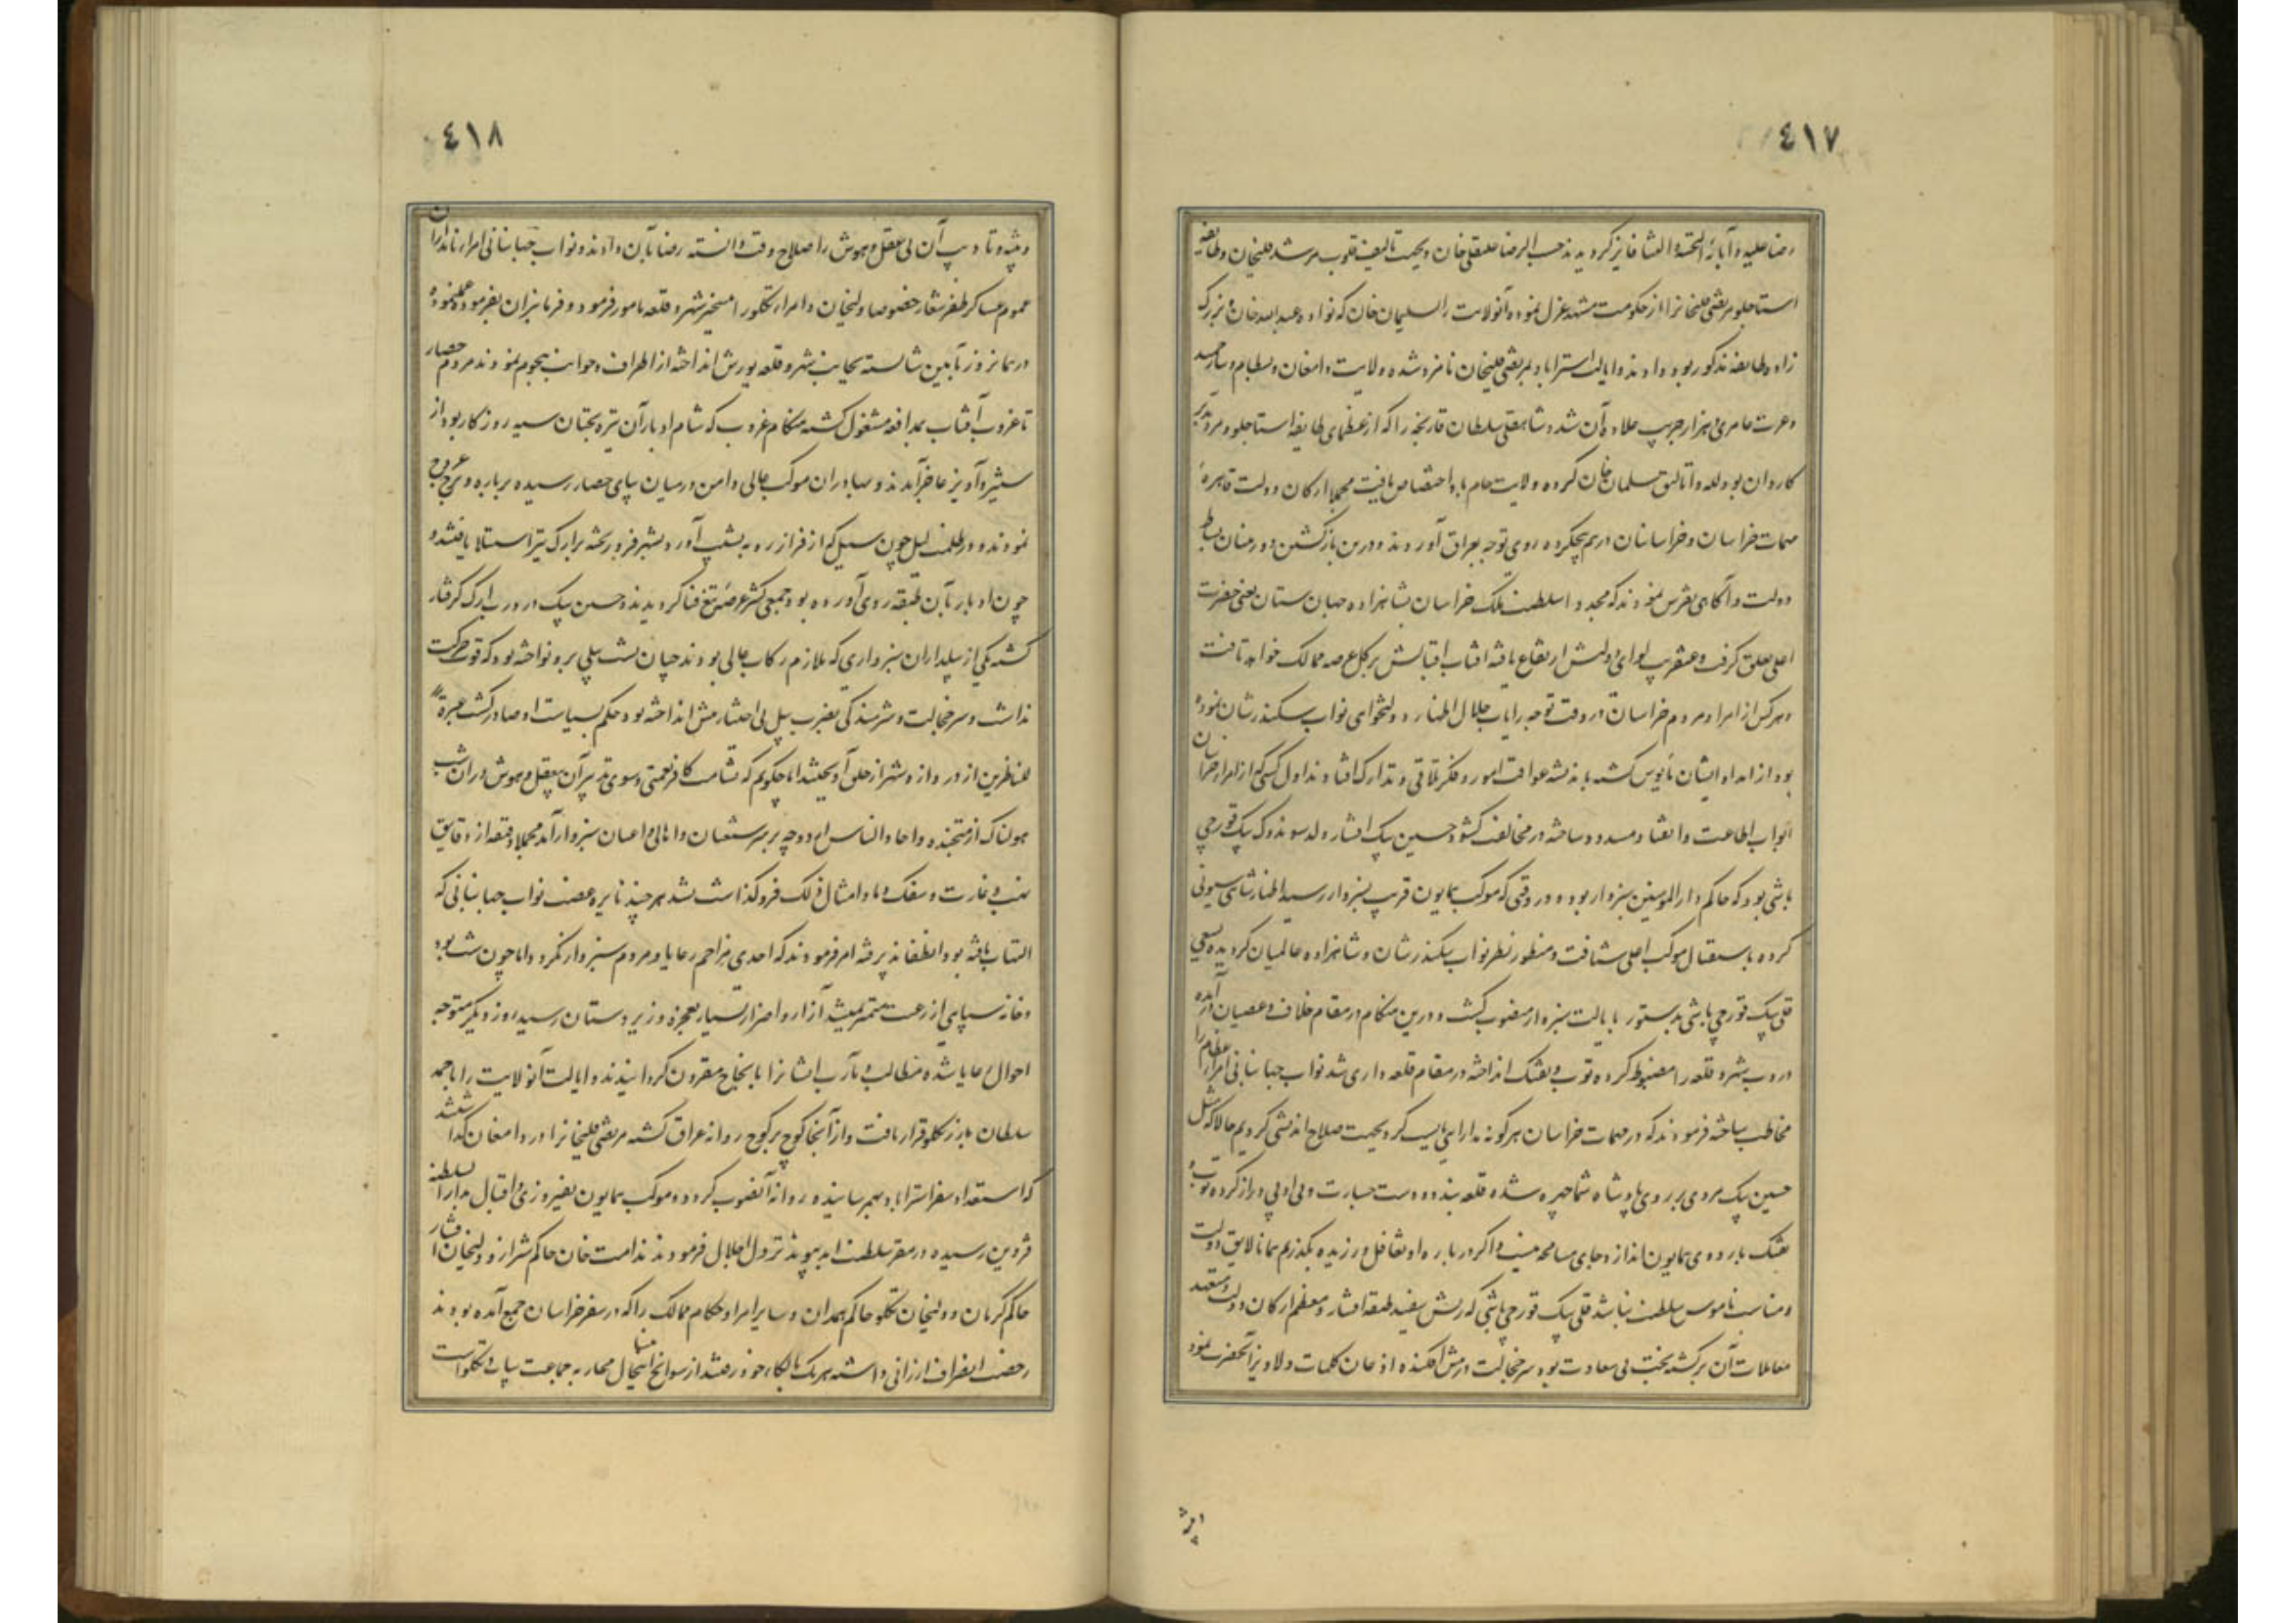 ٤١٧
رضا علیه و آبائه التحیة و الثنا فایز کردیدند حسب الرضا علیقلی خان و بجهت تالیف قلوب مرشد قلیخان و طایفه
استاجلو مرتضی قلیخانرا از حکومت مشهد عزل نموده آنولایت را بسلیمان خان که نواده عبدالله خان و بزرک
زاده طایفه مذکور بود دادند و ایالت استراباد بمرتضی قلیخان نامزد شده ولایت دامغان و بسطام و بیارجمند
و عرب عامری و هزارجریب علاوه آن شد و شاهقلی سلطان قارنجه را که از عظمای طایفه استاجلو و مرد با تدبیر
کاردان بود لله و اتالیق سلمان خان کرده ولایت جام باو اختصاص یافت مجملا ارکان دولت قاهره
مهمات خراسان و خراسانیان درهم پیچکرده روی توجه بعراق آوردند و درین بازکشتن دورمنان بساط
دولت و آکاهی بفرس نمودند که مجددا سلطنت ملک خراسان بشاهزاده جهان ستان یعنی حضرت
اعلی تعلق کرفت و عنقریب لوای دولتش ارتفاع یافته افتاب اقبالش بر کل عرصه ممالک خواهد تافت
و هر کس از امرا و مردم خراسان در وقت توجه رایات جلال اظهار دولتخواهی نواب سکندرشان نموده
بود از امداد ایشان مایوس کشته باندیشه عواقب امور و فکر تلافی و تدارک افتادند اول کسی که از امراء خراسان
ابواب اطاعت و انقیاد مسدود ساخته در مخالفت کشود حسین بیک افشار ولد سوندوک بیک قورچی
باشی بود که حاکم دار المومنین سبزوار بود و در وقتی که موکب همایون قریب بسبزوار رسید اظهار شاهی سیونی
کرده باستقبال موکب اعلی شتافت و منظور نظر نواب سکندرشان و شاهزاده عالمیان کردیده بسعی
قلی بیک قورچی باشی بدستور بایالت سبزوار منصوب کشت و درین هنکام در مقام خلاف و عصیان درآمده
دروب شهر و قلعه را مضبوط کرده توپ و تفنک انداخته در مقام قلعه داری شد نواب جهانبانی امراء عظام را
مخاطب ساخته فرمودند که در مهمات خراسان هر کونه مدارایی بایست کرد بجهت صلاح اندیشی کردیم حالا که مثل
حسین بیک مردی بر روی پادشاه شما چیره شده قلعه بندد و دست جسارت و بی ادبی دراز کرده توپ و
تفنک باردوی همایون اندازد جای مسامحه نیست و اکر درباره او تغافل ورزیده بکذریم همانا لایق دولت
و مناسب ناموس سلطنت نباشد قلی بیک قورچی باشی که ریش سفید طبقه افشار و معظم ارکان دولت و متعهد
معاملات آن برکشته بخت بی سعادت بود سر خجالت در پیش افکنده اذعان کلمات دلاویز آنحضرت نمود
٤١٨
و تنبیه و تادیب آن بی عقل و هوش را صلاح وقت دانسته رضا بآن دادند و نواب جهانبانی امراء نامدار ان
عموم عساکر ظفر شعار خصوصا ولیخان و امراء تکلو را بتسخیر شهر و قلعه مامور فرمود و فرمانبران بفرموده عمل نموده
در همانروز بآیین شایسته بجانب شهر و قلعه یورش انداخته از اطراف و جوانب هجوم نمودند مردم حصار
تا غروب آفتاب بمدافعه مشغول کشته هنکام غروب که شام ادبار آن تیره بختان سیه روزکار بود از
ستیز و آویز عاجز آمدند و بهادران موکب عالی دامن در میان بپای حصار رسیده بر باره و برج عروج
نمودند و در ظلمت لیل چون سیل که از فراز رو به نشیب آورد بشهر فرو ریخته بر ارک نیز استیلا یافتند و
چون ادبار بآن طبقه روی آورده بود جمعی کثیر عرضه تیغ فنا کردیدند حسین بیک در درب ارک کرفتار
کشته یکی از بیلداران سبزواری که ملازم رکاب عالی بودند چنان بشت بیلی برو نواخته بود که قوت حرکت
نداشت و سر خجالت و شرمندکی بضرب بیل بی اختیار پیش انداخته بود حکم بسیاست او صادر کشت عبرة
للناظرین از دروازه شهر از حلق آویختند اما چکویم که بشامت کافر نعمتی و سوء تدبیر آن بی عقل و هوش در ان شب
هولناک از متجنده و احاد الناس اردو چه بر سر متعینان و اهالی و اعیان سبزوار آمد مجملا دقیقه از دقایق
نهب و غارت و سفک دماء و امثال ذلک فروکذاشت نشد هر چند نایره غضب نواب جهانبانی که
التهاب یافته بود انطفا پذیرفته امر فرمودند که احدی مزاحم رعایا و مردم سبزوار نکردد اما چون شب بود
و خانه سپاهی از رعیت متمیز نمیشد آزار و اضرار بسیار بعجزه و زیردستان رسید روز دیکر متوجه
احوال رعایا شده مطالب و مآرب ایشانرا بانجاح مقرون کردانیدند و ایالت آنولایت را باجمد
سلطان بابر کلو قرار یافت و از آنجا کوچ بر کوچ روانه عراق کشته مرتضی قلیخانرا در دامغان کذاشتند
که استعداد سفر استراباد بهم رسانیده روانه آنصوب کردد و موکب همایون بفیروزی و اقبال بدار السلطنه
قزوین رسیده در مقر سلطنت ابد پیوند نزول اجلال فرمودند امت خان حاکم شیراز و ولیخان افشار
حاکم کرمان و ولیخان تکلو حاکم همدان و سایر امرا و حکام ممالک را که در سفر خراسان جمع آمده بودند
رخصت انصراف ارزانی داشته هر یک بالکاء خود رفتند از سوانح اینحال محاربه جماعت بیات و تکلو است